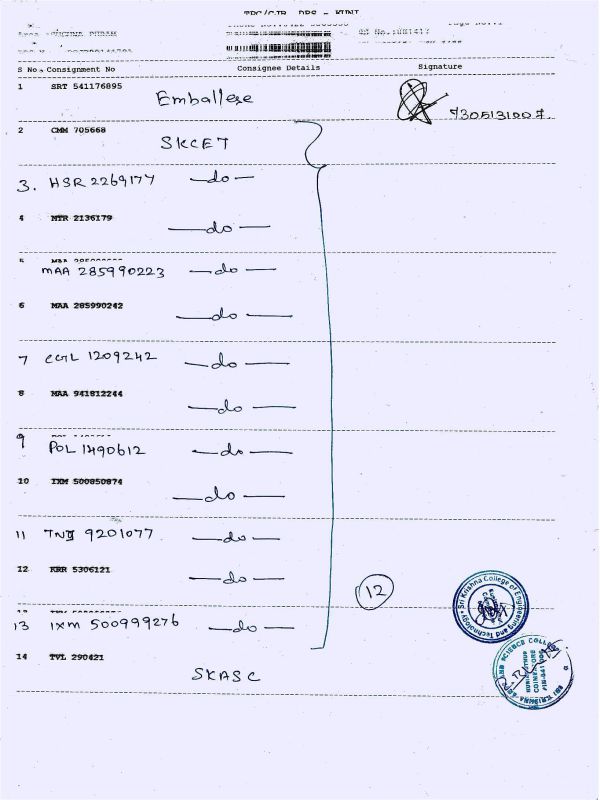 S No. Consignment No Consignee Details Signature
1 SRT 541176895 Emballese
730513100 7.
2 CMM 705668 SKCET
3. HSR 2269177 —do—
4 MTR 2136179 —do—
5
MAA 285990223 —do—
6 MAA 285990242 —do—
7 CGL 1209242 —do—
8 MAA 941812244 —do—
9
POL 1490612 —do—
10 IXM 500850874 —do—
11 TNJ 9201077 —do—
12 KRR 5306121 —do—
12
13 IXM 500999276 —do—
14 TVL 290421 SKASC
Sri Krishna College of Engineering and Technology
SRI KRISHNA ARTS AND SCIENCE COLLEGE
COIMBATORE